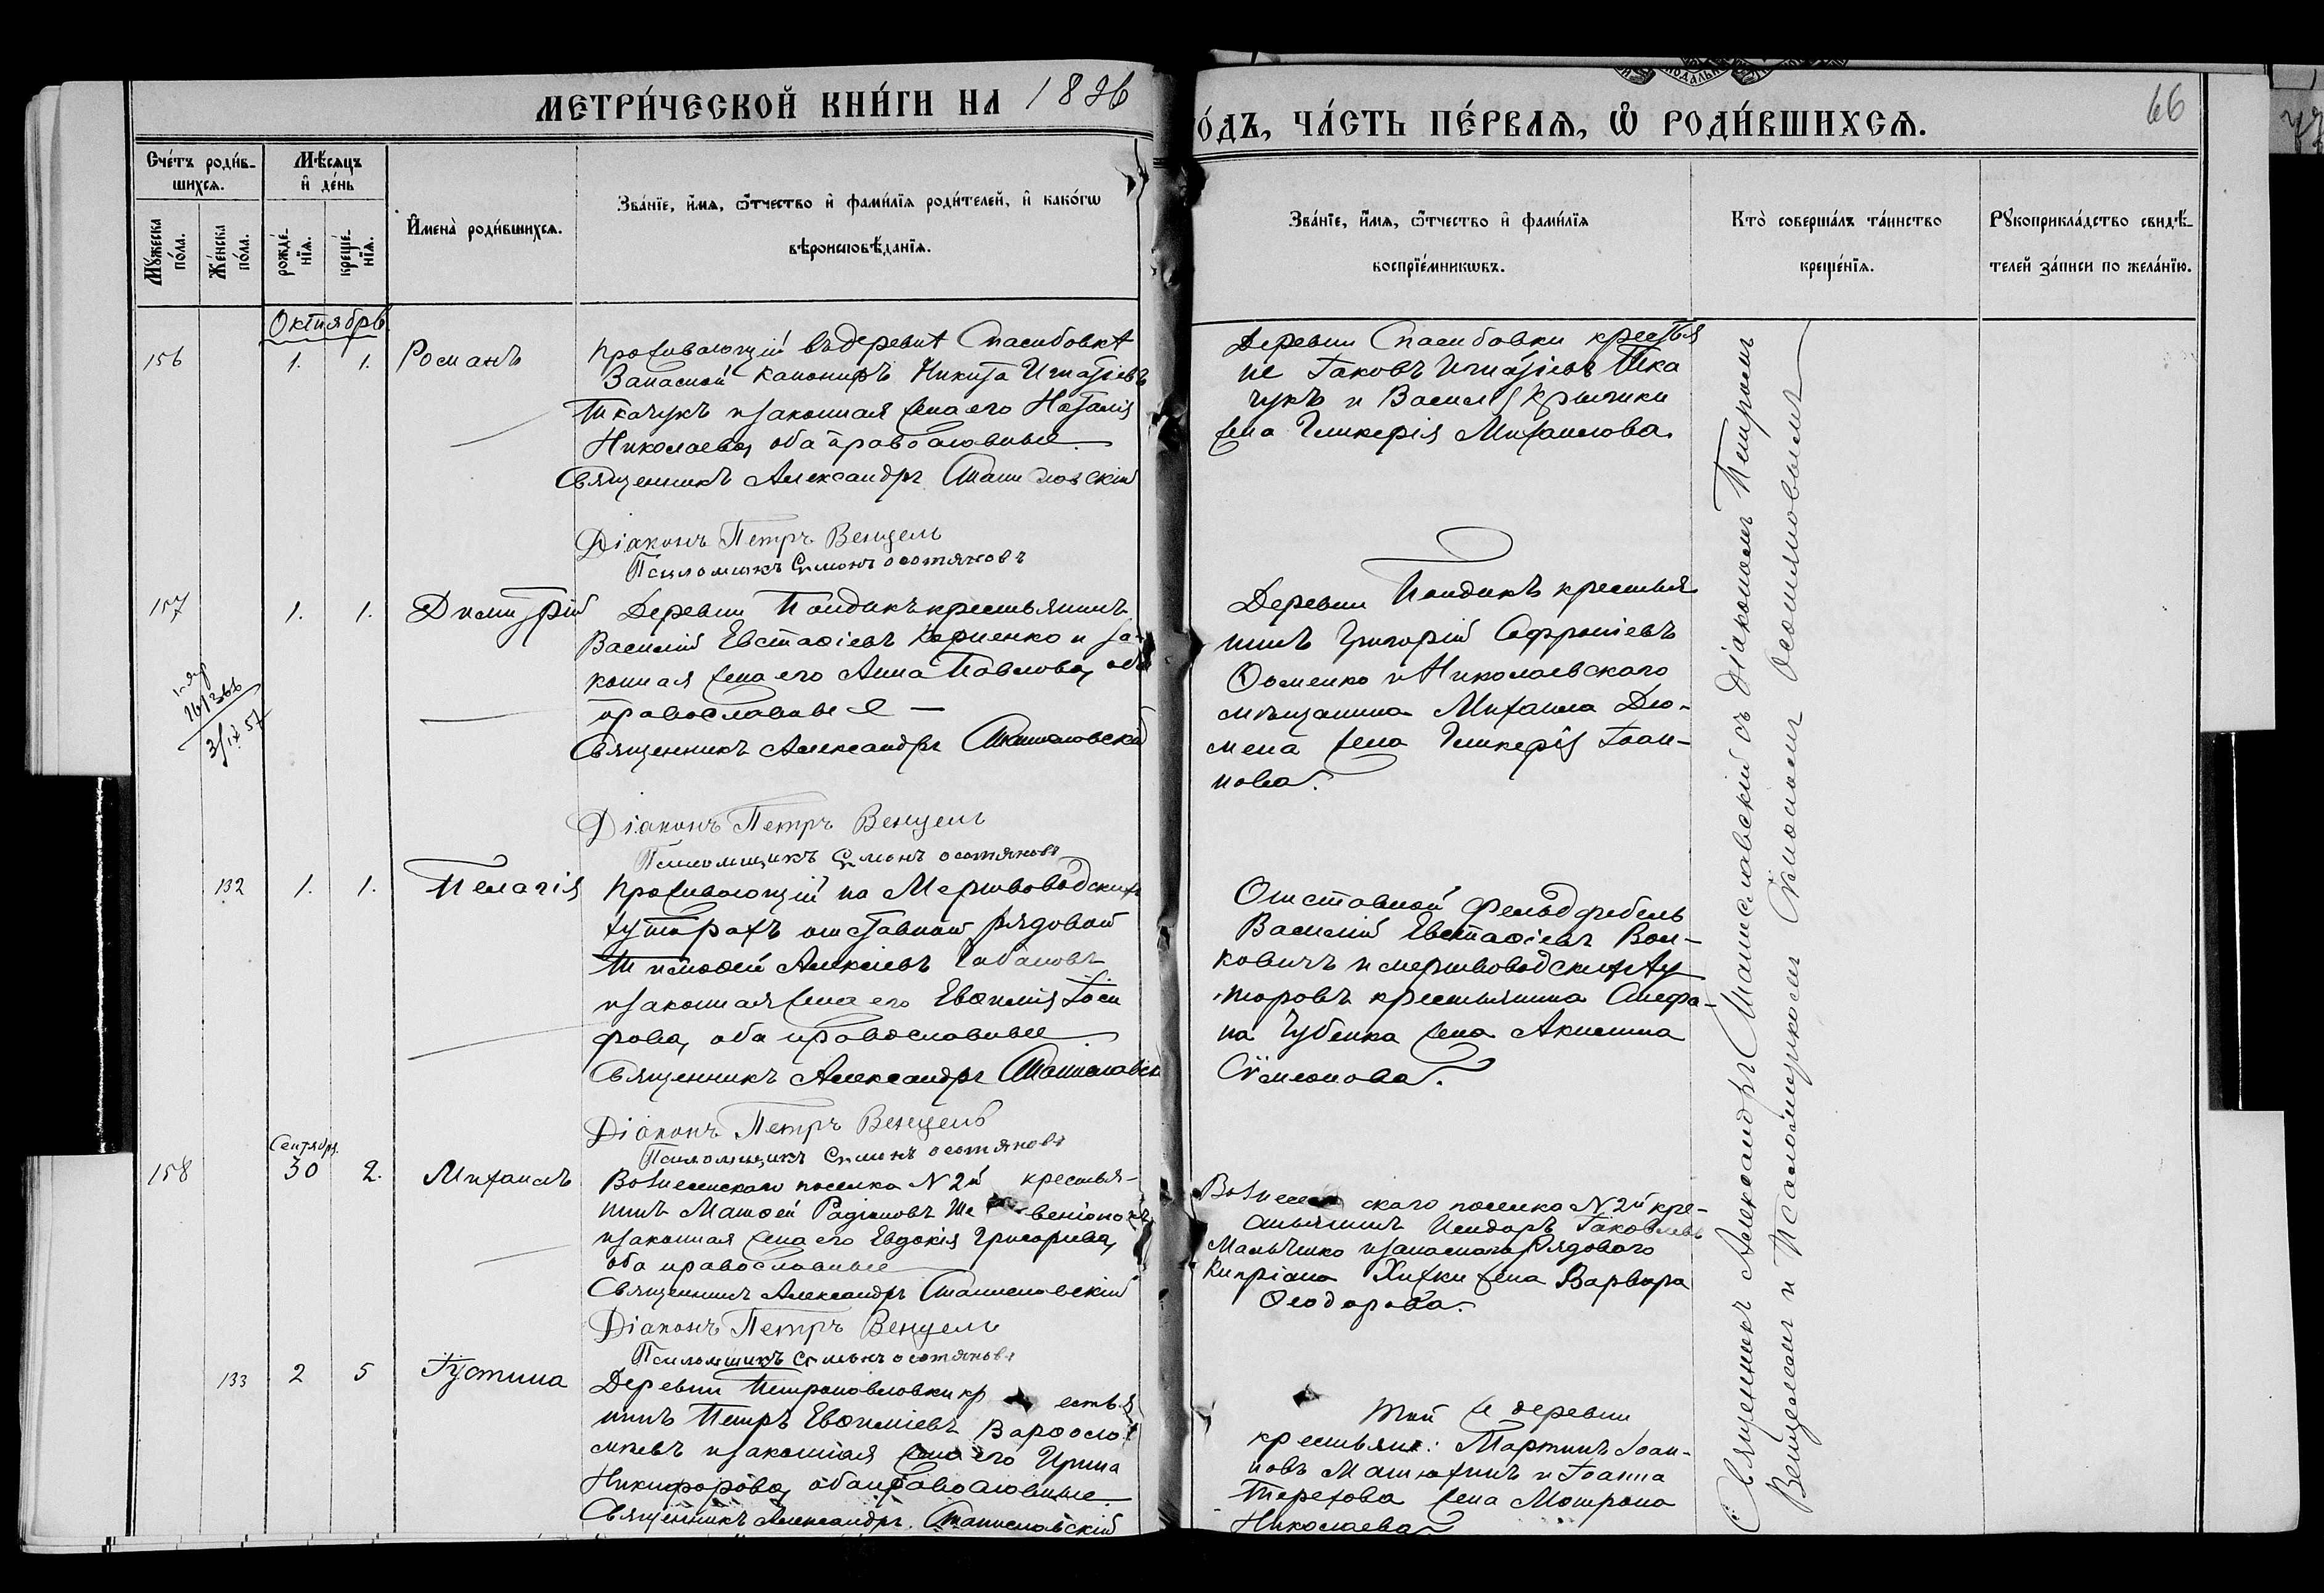 МЕТРИ́ЧЕСКОЙ КНИ́ГИ НА 1896
О́ДЪ, ЧА́СТЬ ПЕ́РВАѦ, Ѡ҆ РОДИ́ВШИХСѦ.
66
Сче́тъ роди́в-
шихсѧ.
Мꙋжеска по́ла.
Же́нска по́ла.
Мѣ́сѧцъ
и҆ де́нь
рожде́-
нїѧ.
креще́-
нїѧ.
И҆мена̀ роди́вшихсѧ.
Зва́нїе, и҆́мѧ, ѻ҆́тчество и҆ фами́лїѧ роди́телей, и҆ како́гѡ
вѣроисповѣ́данїѧ.
Зва́нїе, и҆́мѧ, ѻ҆́тчество и҆ фами́лїѧ
воспрїе́мникѡвъ.
Кто̀ соверша́лъ та́инство
креще́нїѧ.
Рꙋкоприкла́дство свидѣ́-
телей за́писи по жела́нїю.
Октябрь
156 1. 1. Романъ
Проживающій въ деревнѣ Спасибовкѣ
Запасной канониръ Никита Игнатіевъ
Ткачукъ и законная жена его Наталія
Николаева, оба православные.
Священникъ Александръ Станиславскій
Діаконъ Петръ Венцель
Псаломщикъ Симонъ Осотяновъ
Деревни Спасибовки крестья
не Іаковъ Игнатіевъ Тка
чукъ и Василія
жена Гликерія Михаилова.
157 1. 1. Димитрій
Деревни Пондикъ крестьянинъ
Василій Евстафіевъ и за-
конная жена его Анна Павлова, оба
православные —
Священникъ Александръ Станиславскій
Діаконъ Петръ Венцель
Псаломщикъ Симонъ Осотяновъ
Деревни Пондикъ крестья
нинъ Григорій Софроніевъ
Фоменко и Николаевского
мѣщанина Михаила Дю-
мена жена Гликерія Іоан-
нова.
132 1. 1. Пелагія
Проживающій на Мертвоводскихъ
хуторахъ отставной рядовой
Тимофей Алексіевъ
и законная жена его Евфимія
фова, оба православные
Священникъ Александръ Станиславскі
Діаконъ Петръ Венцель
Псаломщикъ Симонъ Осотяновъ
Отставной фельдфебель
Василій Евстафіевъ Вой-
ковичъ и мертвоводскихъ ху
торовъ крестьянина Стефа-
на Губенка жена Акилина
Сѵмеонова.
Сентября.
158 30 2. Михаилъ
Вознесенскаго поселка N 2й крестья-
нинъ Матфей Радіоновъ
и законная жена его Евдокія Григориева,
оба православные
Священникъ Александръ Станиславскій
Діаконъ Петръ Венцель
Псаломщикъ Симонъ Осотяновъ
Вознесенского поселка N 2й кре-
стьянинъ Исидоръ Іаковлевъ
и запаснаго рядового
Кипріана жена Варвара
Феодорова.
133 2 5 Іустина
Деревни Петропавловки крестья
нинъ Петръ Евфиміевъ Варфоло
мѣевъ и законная жена его Ирина
Никифорова, оба православные
Священникъ Александръ Станиславскій
Той же деревни
крестьяне: Мартинъ Іоан-
новъ и Іоанна
Терехова жена Мотрона
Николаева
Священникъ Александръ Станиславскій съ Діакономъ Петромъ
Венцелемъ и Псаломщикомъ Сѵмономъ Осотяновымъ